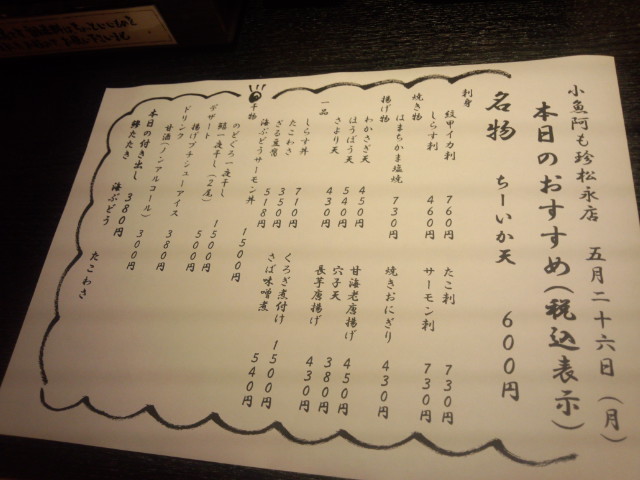 小魚阿も珍松永店 五月二十六日(月)
本日のおすすめ(税込表示)
名物 ちーいか天 600円
刺身
紋甲イカ刺 760円 たこ刺 730円
しらす刺 460円 サーモン刺 730円
焼き物
はまちかま塩焼 730円 焼きおにぎり 430円
揚げ物
わかさぎ天 450円 甘海老唐揚げ 450円
ほうぼう天 540円 穴子天 380円
さより天 430円 長芋唐揚げ 430円
一品
しらす丼 710円 くろぎ煮付け 1500円
たこわさ 350円 さば味噌煮 540円
ざる豆腐
海ぶどうサーモン丼 518円
干物
のどぐろ一夜干し 1500円
鯣一夜干し(2尾) 1500円
デザート
揚げプチシューアイス 500円
ドリンク
甘酒(ノンアルコール) 380円
本日の付き出し 300円
鰹たたき 380円 海ぶどう たこわさ